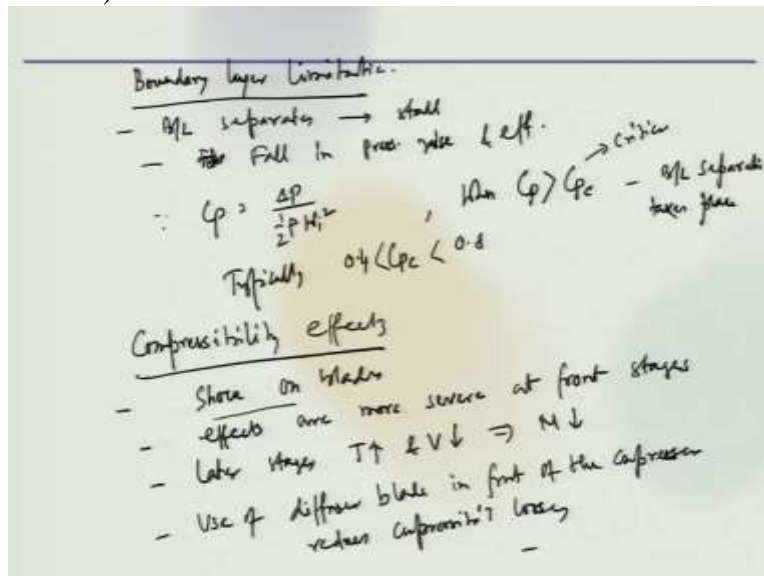 Boundary layer Limitatic.
- B/L separates → stall
- Fall in press. rise & eff.
∵ Cp = ΔP / ½ρW₁² , When Cp > Cpc → Critica - B/L separati
taken place
Typically 0.4 < Cpc < 0.8
Compressibility effects
- Shock on blades
- effects are more severe at front stages
- Later stages T↑ & V↓ ⇒ M↓
- Use of diffuser blade in front of the compressor
reduces losses